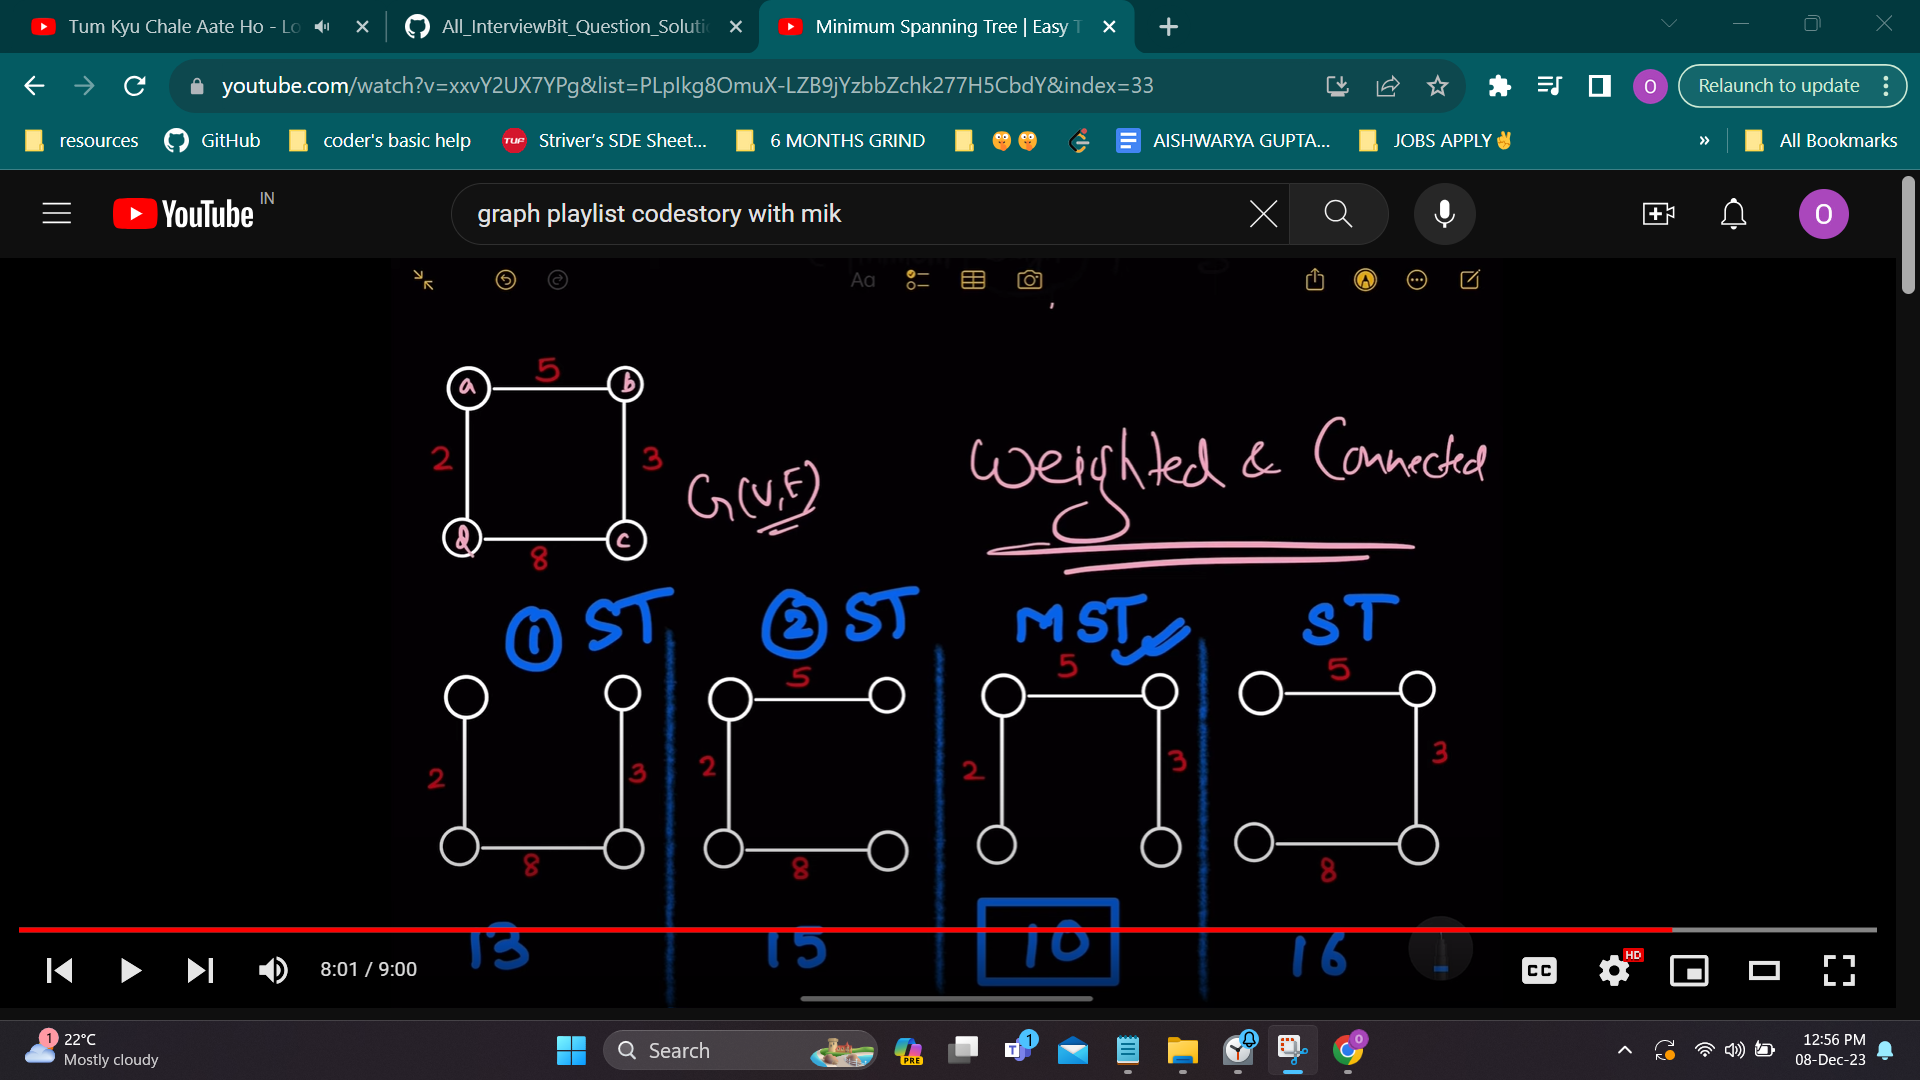 Tum Kyu Chale Aate Ho - Lo
All_InterviewBit_Question_Soluti
Minimum Spanning Tree | Easy T
youtube.com/watch?v=xxvY2UX7YPg&list=PLpIkg8OmuX-LZB9jYzbbZchk277H5CbdY&index=33
O
Relaunch to update
resources
GitHub
coder's basic help
TUF
Striver's SDE Sheet...
6 MONTHS GRIND
AISHWARYA GUPTA...
JOBS APPLY✌
»
All Bookmarks
YouTube IN
graph playlist codestory with mik
O
Aa
a 5 b
2 3
G(V,E)
Weighted & Connected
d 8 c
① ST
② ST
MST
ST
5 5 5
2 3 2 2 3 3
8 8 8
13 15 10 16
8:01 / 9:00
CC
HD
1
22°C
Mostly cloudy
Search
PRE
1
O
12:56 PM
08-Dec-23